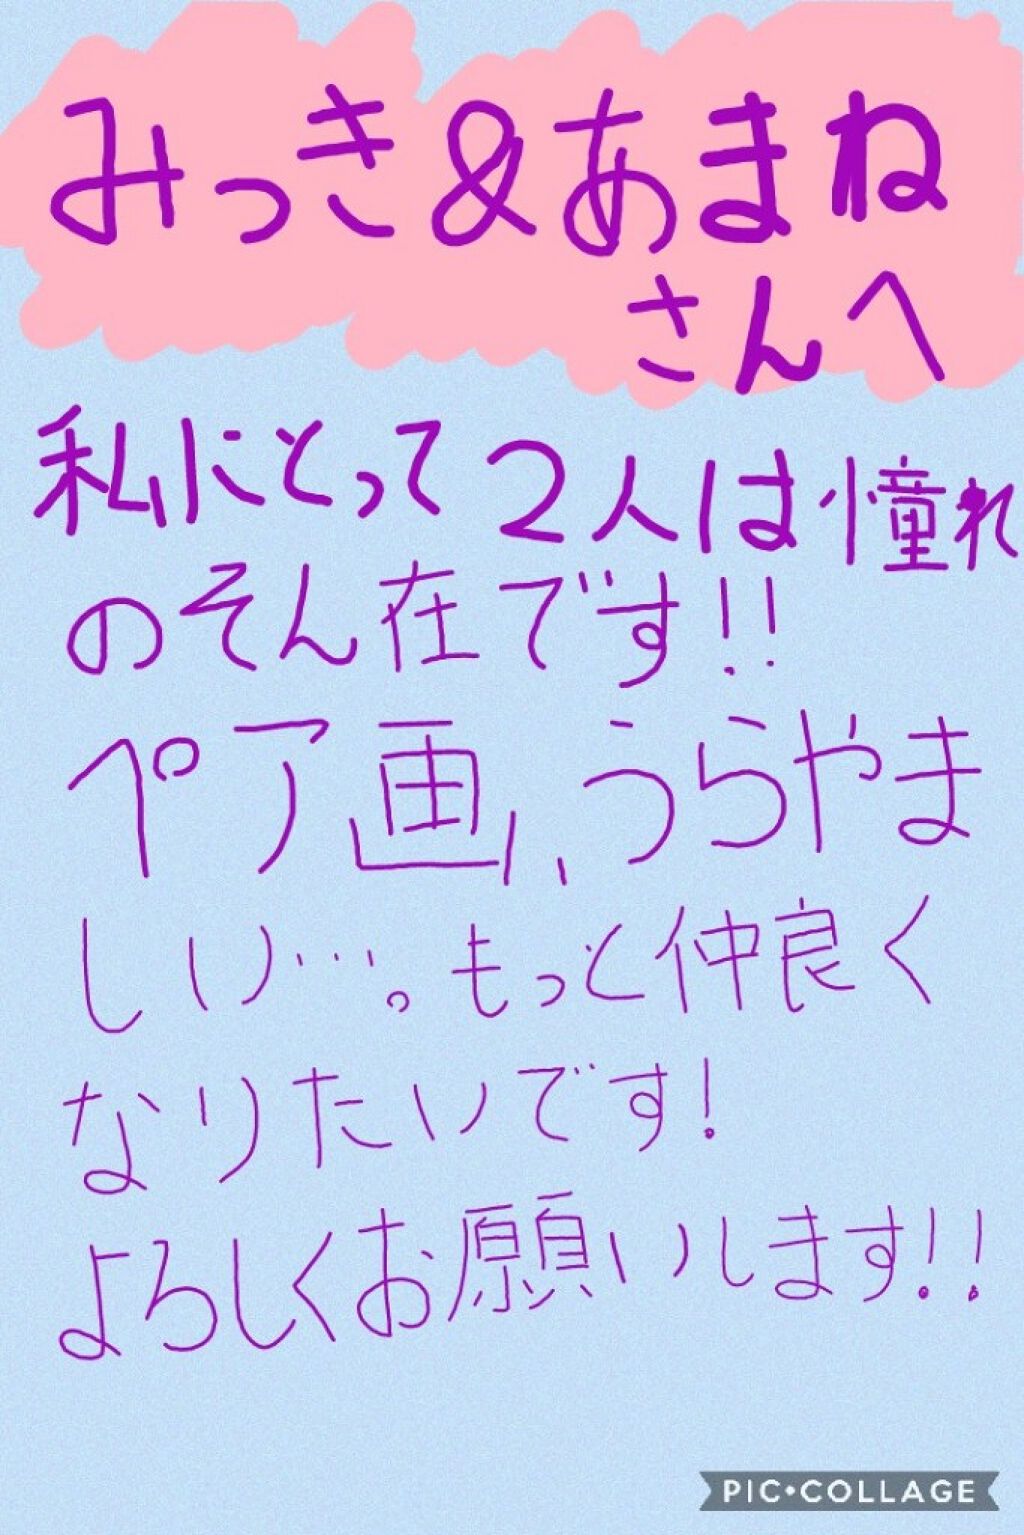 みっき&あまね
さんへ
私にとって2人は憧れ
のそん在です!!
ペア画、うらやま
しい…。もっと仲良く
なりたいです!
よろしくお願いします!!
PIC•COLLAGE